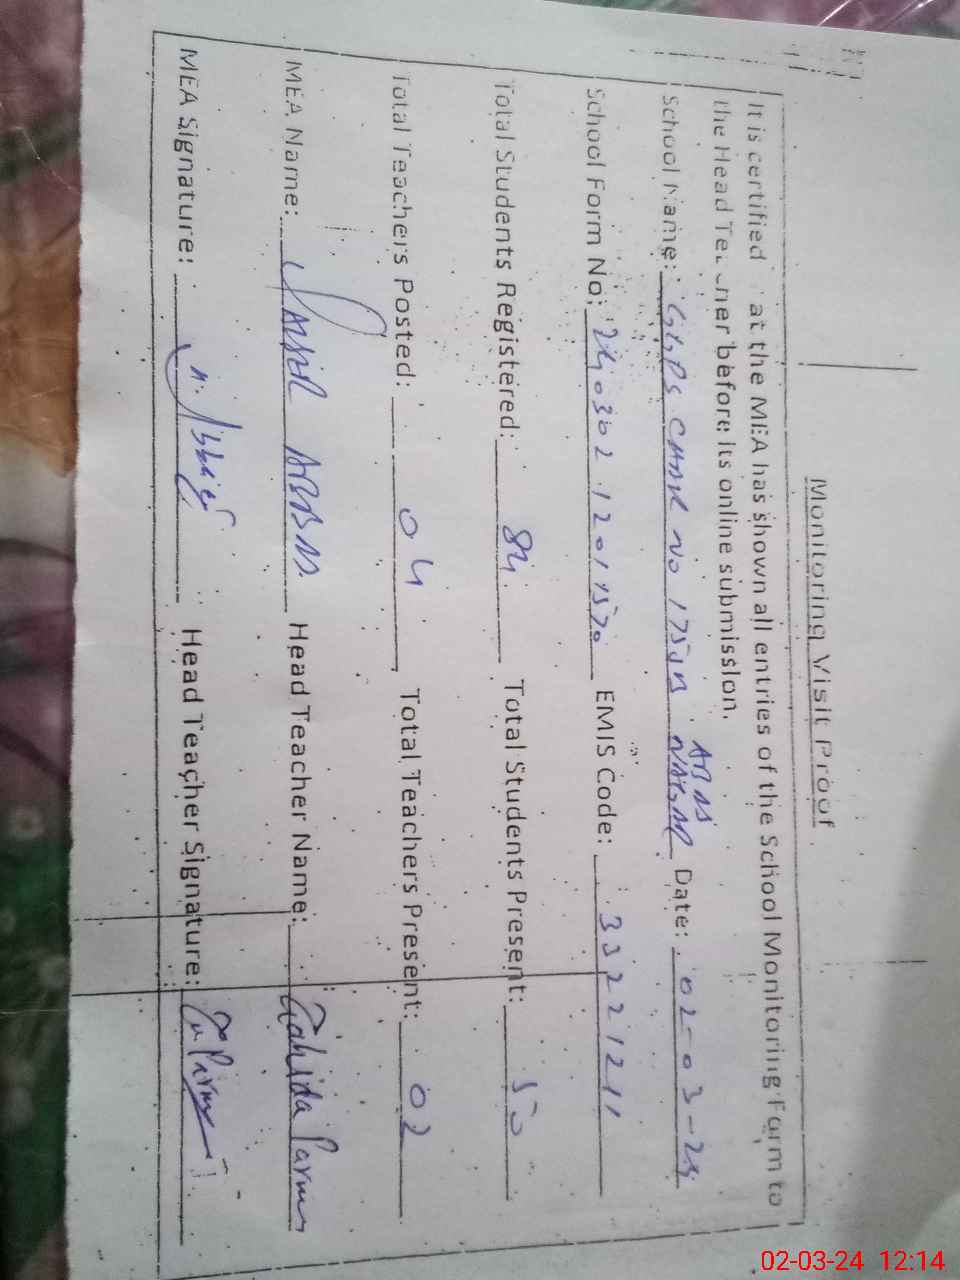 Monitoring Visit Proof
It is certified at the MEA has shown all entries of the School Monitoring Form to
the Head Teacher before its online submission.
School Name: GGPS CHAK NO 175/N Date: 02-03-24
School Form No: EMIS Code: 33221211
Total Students Registered: 84 Total Students Present: 50
Total Teachers Posted: 04 Total Teachers Present: 02
MEA Name: ABBAS Head Teacher Name: Zahida Parveen
MEA Signature: Head Teacher Signature:
02-03-24 12:14